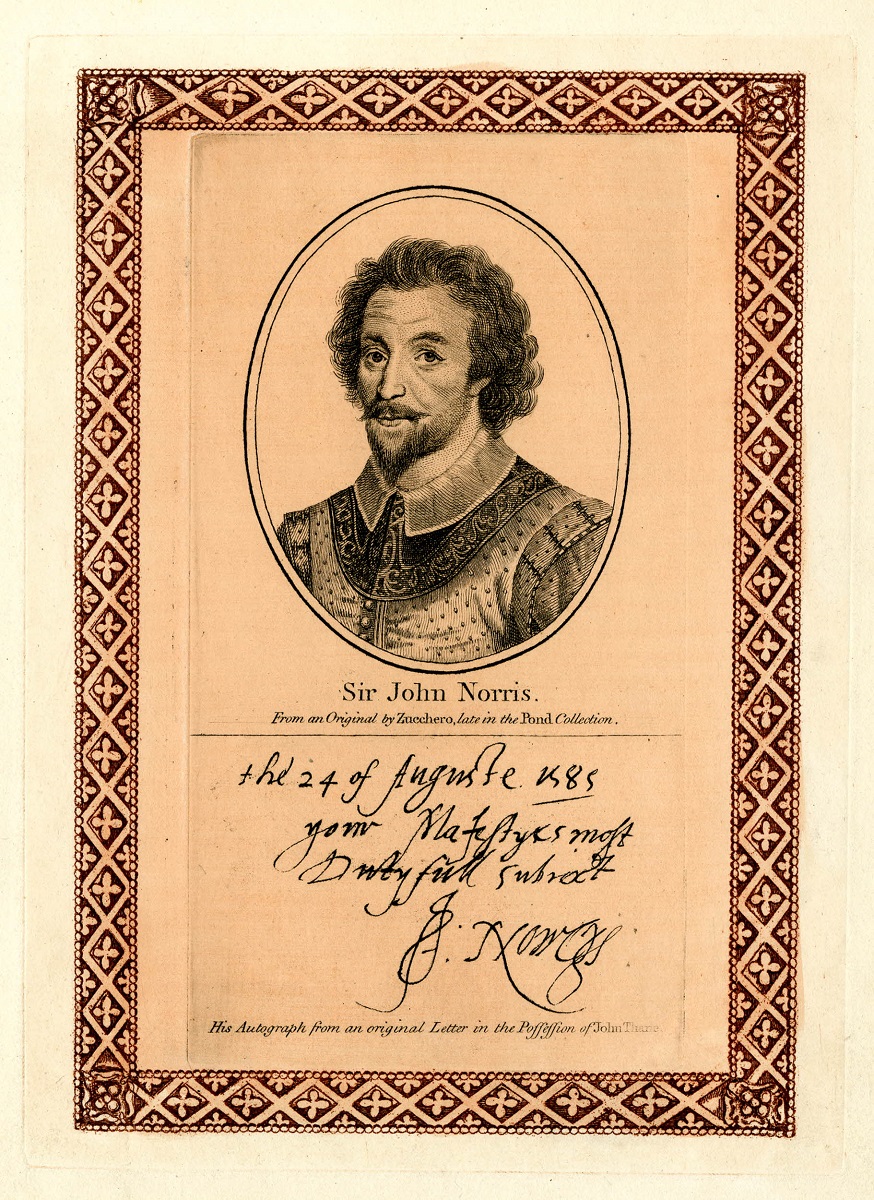 Sir John Norris.
From an Original by Zucchero, late in the Pond Collection.
the 24 of Auguste 1585
your Majestyes most
Dutyfull subiect
J: Norreys
His Autograph from an original Letter in the Poſſeſſion of John Thane.